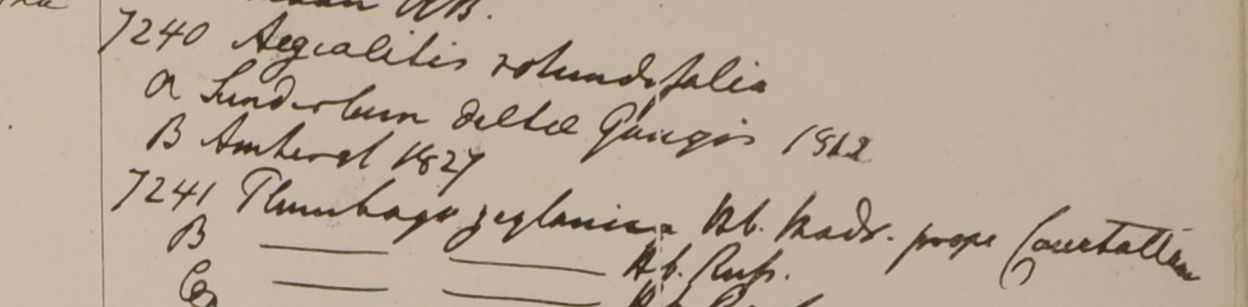 HB.
7240 Aegialitis rotundifolia
a Sunderbun deltae Gangis 1812
B Amherst 1827
7241 Plumbago zeylanica Hb. Madr. prope Courtallum
B — — Hb. Russ.
— — Hb.